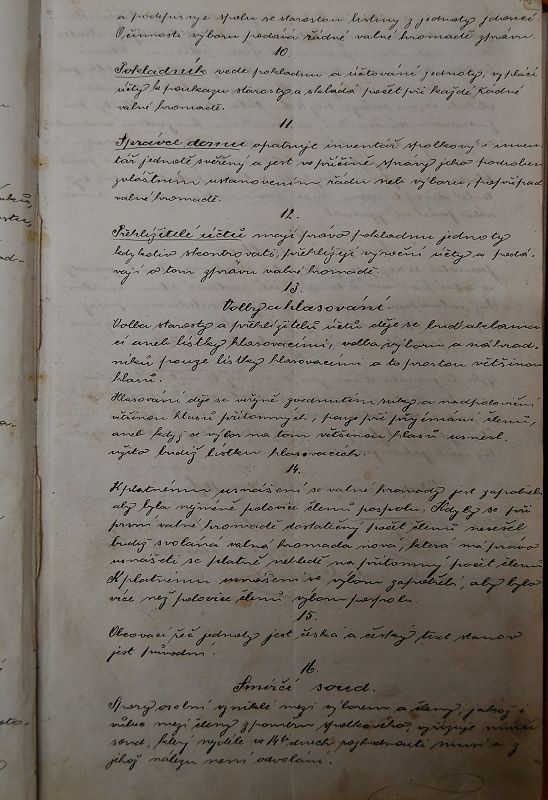 a podepisuje spolu se starostou listiny z jednoty jdoucí.
O činnosti výboru podává řádné valné hromadě zprávu.
10.
Pokladník vede pokladnu a účtování jednoty, vyplácí
účty k poukazu starosty a skládá počet při každé řádné
valné hromadě.
11.
Správce domu opatruje inventář spolkový i inven-
tář jednotě svěřený a jest ve příčině správy jeho podroben
zvláštním ustanovením řádu neb výboru, 
valné hromadě.
12.
Přehlížitelé účtů mají právo pokladnu jednoty
kdykoliv skontrovati, přehlížejí výroční účty a podá-
vají o tom zprávu valné hromadě.
13.
Volby a hlasování.
Volba starosty a přehlížitelů účtů děje se buď aklama-
cí aneb lístky hlasovacími, volba výboru a náhrad-
níků pouze lístky hlasovacími a to prostou většinou
hlasů.
Hlasování děje se veřejně zvednutím ruky a nadpoloviční
většinou hlasů přítomných, pouze při přijímání členů,
aneb když se výbor na tom většinou hlasů usnesl,
budiž lístku hlasovacích.
14.
K platnému usnášení se valné hromady jest zapotřebí
aby byla nejméně polovice členů pospolu. Kdyby se při
první valné hromadě dostatečný počet členů nesešel
budiž svolána valná hromada nová, která má právo
usnášeti se platně nehledě na přítomný počet členů.
K platnému usnášení se výboru zapotřebí, aby bylo
více než polovice členů výboru pospolu.
15.
Obcovací řeč jednoty jest česká a český text stanov
jest původní.
16.
Smírčí soud.
Spory osobní vzniklé mezi výborem a členy, jakož i
vůbec mezi členy z poměru spolkového, vyřizuje smírčí
soud, který nejdéle ve 14ti dnech rozhodnouti musí a z
jehož nálezu není odvolání.